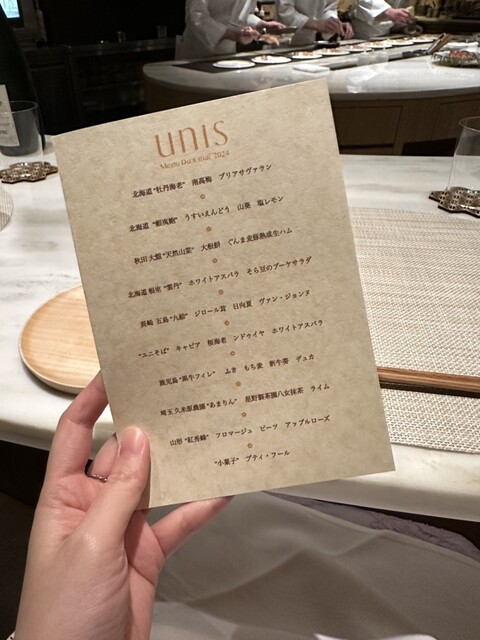 unis
Menu Du 4 mai 2024
北海道 "牡丹海老" 南高梅 ブリアサヴァラン
北海道 "蝦夷鮑" うすいえんどう 山葵 塩レモン
秋田大館 "天然山菜" 大根餅 ぐんま麦豚熟成生ハム
北海道 根室 "雲丹" ホワイトアスパラ そら豆のブーケサラダ
長崎 五島 "九絵" ジロール茸 日向夏 ヴァン・ジョンヌ
"ユニそば" キャビア 桜海老 ンドゥイヤ ホワイトアスパラ
鹿児島 "黒牛フィレ" ふき もち麦 新牛蒡 デュカ
埼玉久米原農園 "あまりん" 星野製茶園八女抹茶 ライム
山形 "紅秀峰" フロマージュ ビーツ アップルローズ
"小菓子" プティ・フール